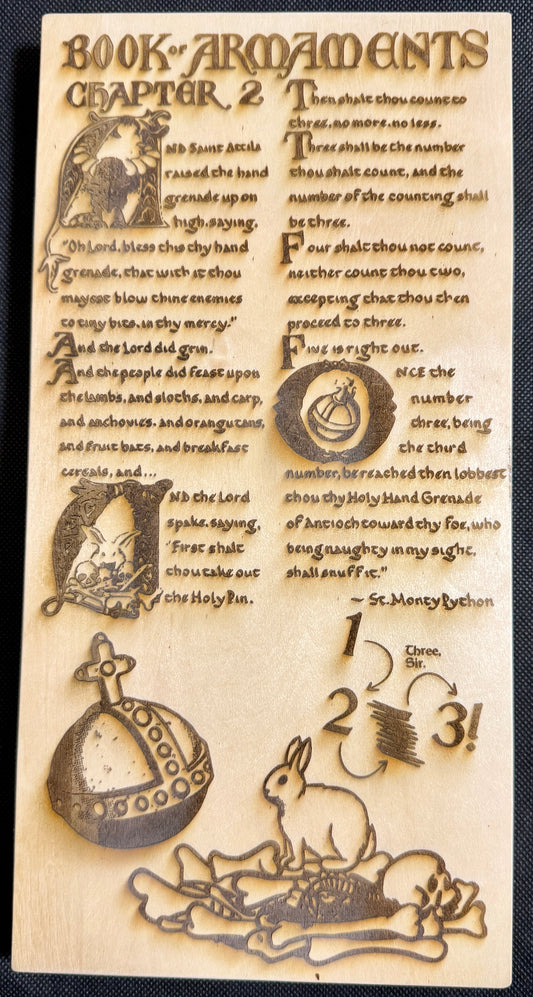 BOOK OF ARMAMENTS
CHAPTER 2
AND Saint Attila
raised the hand
grenade up on
high, saying,
"Oh Lord, bless this thy hand
grenade, that with it thou
mayest blow thine enemies
to tiny bits, in thy mercy."
And the Lord did grin.
And the people did feast upon
the lambs, and sloths, and carp,
and anchovies, and orangutans,
and fruit bats, and breakfast
cereals, and...
AND the Lord
spake, saying,
"First shalt
thou take out
the Holy Pin.
Then shalt thou count to
three, no more, no less.
Three shall be the number
thou shalt count, and the
number of the counting shall
be three.
Four shalt thou not count,
neither count thou two,
excepting that thou then
proceed to three.
Five is right out.
ONCE the
number
three, being
the third
number, be reached then lobbest
thou thy Holy Hand Grenade
of Antioch toward thy foe, who
being naughty in my sight,
shall snuff it."
~ St. Monty Python
1
Three,
Sir.
2 3!